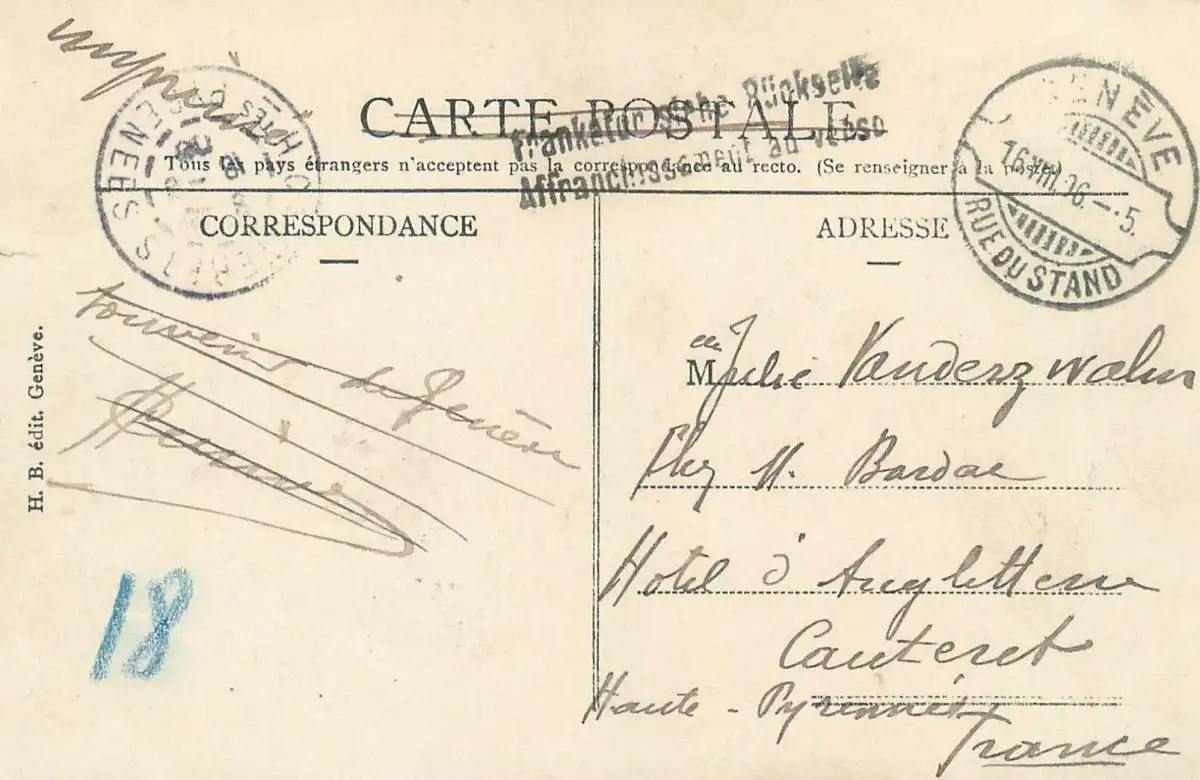 imprimé
CARTE POSTALE
Franketur siehe Rückseite
Affranchissement au verso
Tous les pays étrangers n'acceptent pas la correspondance au recto. (Se renseigner à la poste)
CAUTERETS
HTES PYRÉNÉES
GENÈVE
16.VIII.06.—5.
RUE DU STAND
CORRESPONDANCE
Souvenir de Genève
H. B. édit. Genève.
18
ADRESSE
Melle Julie Vanderzwalm
Chez M. Bardac
Hotel d'Angletterre
Cauteret
Haute-Pyrennées
France